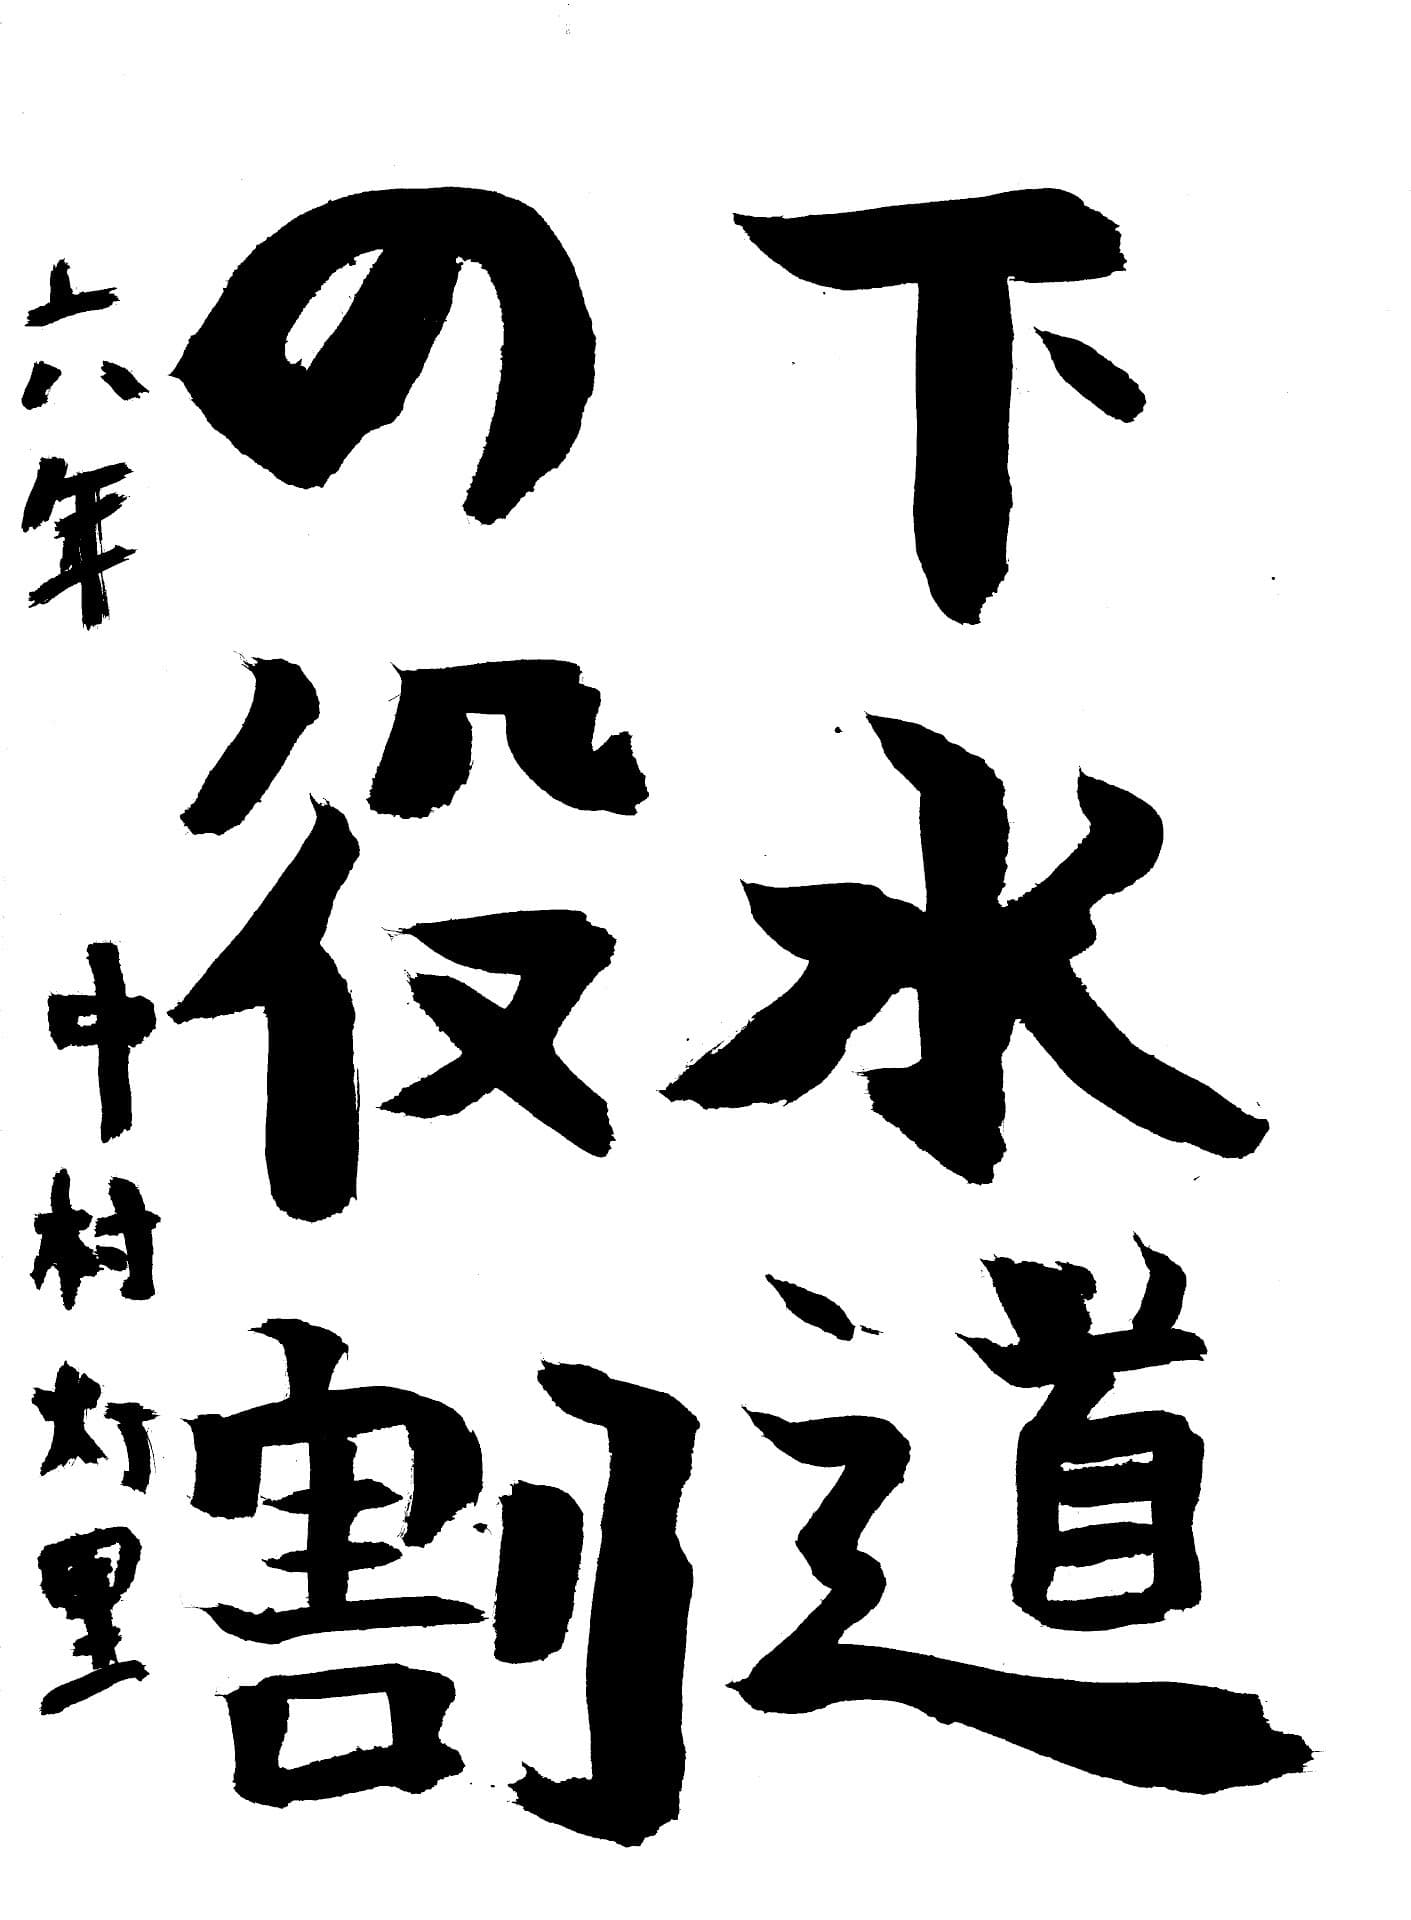 下水道
の役割
六年 中村灯里